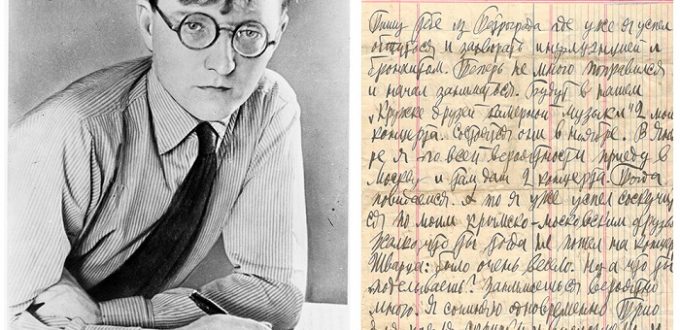 Пишу тебе из Петрограда где уже я успел
и захворать инфлуэнцией и
бронхитом. Теперь не много поправился
и начал заниматься. Будут в нашем
„Кружке друзей камерной музыки" 2 мои
концерта. Состоятся они в ноябре. В Янва
ре я по всей вероятности приеду в
Москву и там дам 2 концерта. Тогда
повидаемся. А то я уже успел соскучить
ся по моим крымско-московским друзьям
Жалко что ты тогда не пошел на концерт
Шварца: было очень весело. Ну а что ты
поделываешь? Занимаешься вероятно
много. Я сочиняю одновременно Трио
для